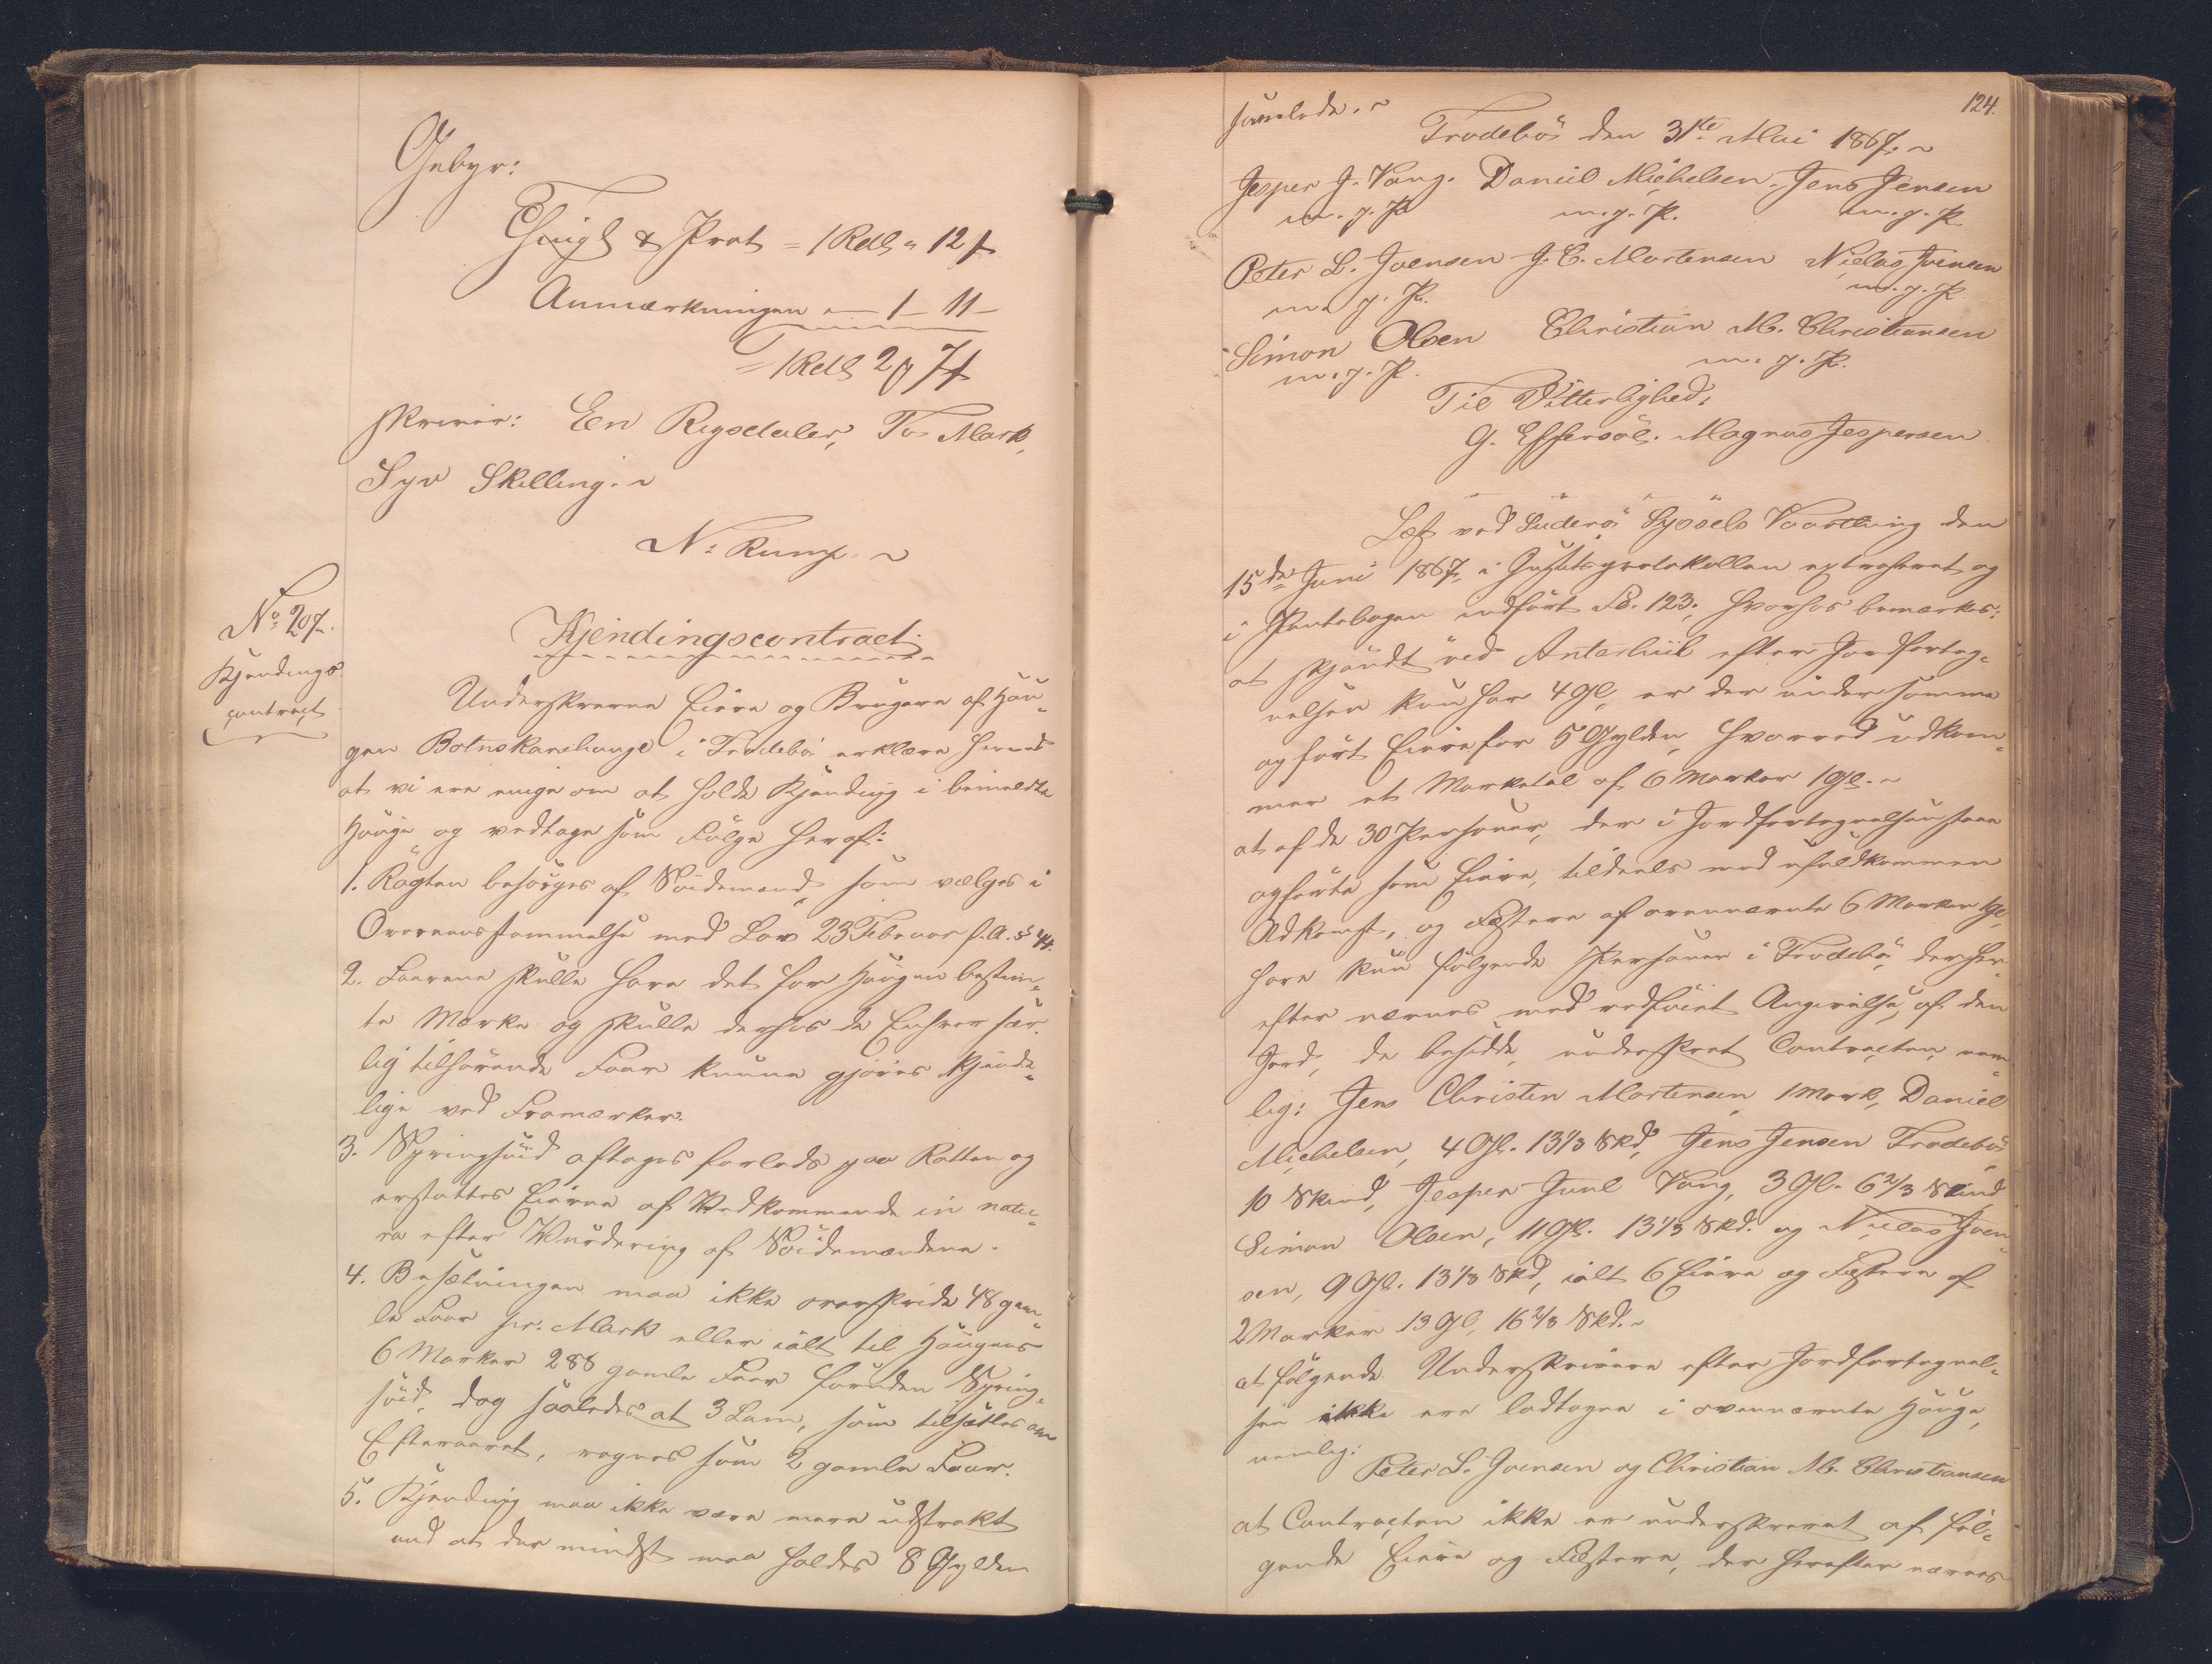 Gebyr:
Thingl & Prot = 1 Rdl " 12 s
Anmærkningen — 1 - 11 -
= 1 Rdl 2 ℳ 7 s
skriver: Een Rigsdaler, To Mark,
Syv Skilling. ~
N: Rump. ~
No 207.
Kjendings
contract
Kjendingscontract.
Underskrevne Eiere og Brugere af Hau-
gen Botnskarshauge i Frodebö erklære herved
at vi ere enige om at holde Kjending i bemeldte
Hauge og vedtage som Følge heraf:
1. Røgten besørges af Söidemænd, som vælges i
Overensstemmelse med Lov 23 Februar f.A. § 4.
2. Faarene skulle have det for Haugen bestem-
te Mærke og skulle derhos de Enhver sær-
lig tilhørende Faar kunne gjøres kjende-
lige ved Framærker.
3. Springsöid aftages forlods paa Retten og
erstattes Eieren af Vedkommende in natu-
ra efter Vurdering af Söidemændene.
4. Besætningen maa ikke overskride 48 gam-
le Faar pr. Mark eller ialt til Haugens
6 Marker 288 gamle Faar foruden Spring-
söid, dog saaledes at 3 Lam, som tilsættes om
Efteraaret, regnes som 2 gamle Faar.
5. Kjending maa ikke være mere udstrakt
end at der mindst maa holdes 8 Gylden
124.
samlede. ~
Frodebö den 31te Mai 1867. ~
Jesper J. Vang. Daniel Michelsen. Jens Jensen
m. p. P. m. p. P. m. p. P.
Peter L. Joensen J. C. Mortensen Niclas Joensen
m. p. P. m. p. P.
Simon Olsen Christian M. Christiansen
m. p. P. m. p. P.
Til Vitterlighed:
G. Effersöe. Magnus Jespersen.
Læst ved Suderö Syssels Vaarthing den
15de Juni 1867, i Justitsprotokollen extraheret og
i Pantebogen indført Fo. 123, hvorhos bemærkes:
at skjøndt ved Antashuil efter Jordforteg-
nelsen kun har 4 Gl, er der under samme
opført Eiere for 5 Gylden, hvorved udkom-
mer et Marketal af 6 Marker 1 Gl. ~
at af de 30 Personer, der i Jordfortegnelsen staae
opførte som Eiere, tildeels med ufuldkommen
Adkomst, og Fæstere af ovennævnte 6 Marker 1 Gl,
have kun følgende Personer i Frodebö, der her-
efter nævnes med vedføiet Angivelse af den
Jord, de besidde, underskrevet Contracten, nem-
lig: Jens Christen Mortensen 1 Mark, Daniel
Michelsen, 4 Gl. 13 1/3 Skd, Jens Jensen Frodebö
10 Skind, Jesper Juul Vang, 3 Gl. 6 2/3 Skind
Simon Olsen, 11 Gl. 13 1/3 Skd. og Niclas Joen-
sen, 9 Gl. 13 1/3 Skd, ialt 6 Eiere og Fæstere af
2 Marker 13 Gl, 16 2/3 Skd. ~
at følgende Underskrivere efter Jordfortegnel-
sen ikke ere lodtagne i ovennævnte Hauge,
nemlig:
Peter L. Joensen og Christian M. Christiansen
at Contracten ikke er underskrevet af føl-
gende Eiere og Fæstere, der herefter nævnes